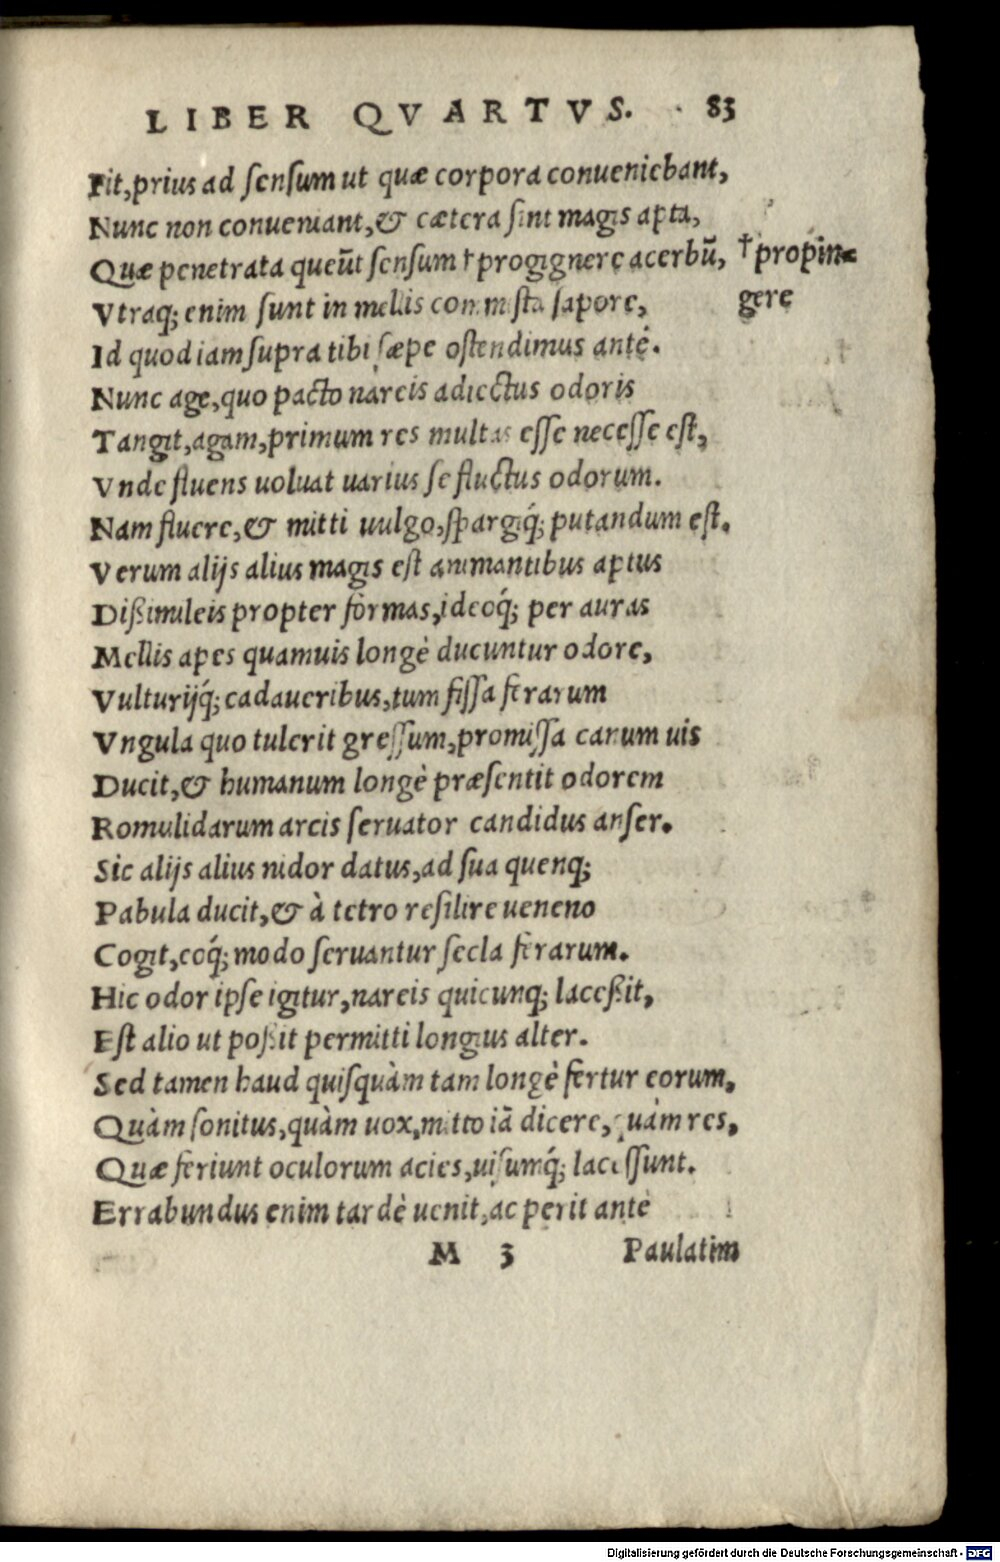 LIBER QVARTVS. 83
Fit,prius ad ſenſum ut quæ corpora conueniebant,
Nunc non conueniant,& cætera ſint magis apta,
Quæ penetrata queũt ſenſum †progignere acerbũ, †propin=
gere
Vtraq; enim ſunt in mellis commiſta ſapore,
Id quod iam ſupra tibi ſæpe oſtendimus antè.
Nunc age,quo pacto nareis adiectus odoris
Tangit,agam,primum res multas eſſe neceſſe eſt,
Vnde fluens uoluat uarius ſe fluctus odorum.
Nam fluere,& mitti uulgo,ſpargiq́; putandum eſt.
Verum alijs alius magis eſt animantibus aptus
Dißimileis propter formas,ideoq́; per auras
Mellis apes quamuis longè ducuntur odore,
Vulturijq́; cadaueribus,tum fiſſa ferarum
Vngula quo tulerit greſſum,promiſſa canum uis
Ducit,& humanum longè præſentit odorem
Romulidarum arcis ſeruator candidus anſer.
Sic alijs alius nidor datus,ad ſua quenq;
Pabula ducit,& à tetro reſilire ueneno
Cogit,eoq́; modo ſeruantur ſecla ferarum.
Hic odor ipſe igitur,nareis quicunq; laceßit,
Eſt alio ut poßit permitti longius alter.
Sed tamen haud quiſquàm tam longè fertur eorum,
Quàm ſonitus,quàm uox,mitto iã dicere,quàm res,
Quæ feriunt oculorum acies,uiſumq́; laceſſunt.
Errabundus enim tardè uenit,ac perit antè
M 3 Paulatim
Digitalisierung gefördert durch die Deutsche Forschungsgemeinschaft - DFG